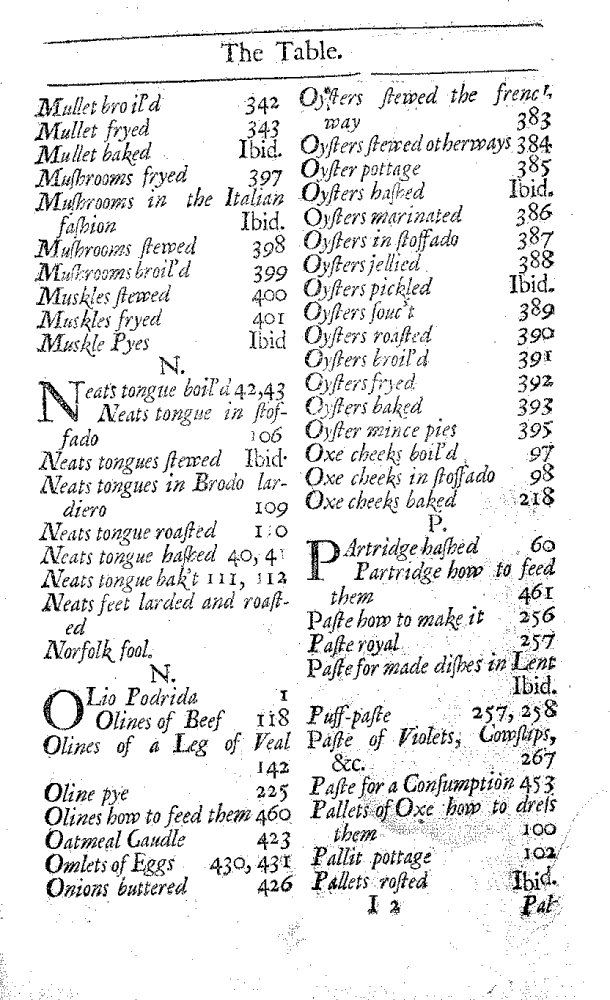 The Table.
Mullet broil'd 342
Mullet fryed 343
Mullet baked Ibid.
Muſhrooms fryed 397
Muſhrooms in the Italian
faſhion Ibid.
Muſhrooms ſtewed 398
Muſhrooms broil'd 399
Muskles ſtewed 400
Muskles fryed 401
Muskle Pyes Ibid
N.
Neats tongue boil'd 42,43
Neats tongue in ſtof-
fado 106
Neats tongues ſtewed Ibid.
Neats tongues in Brodo lar-
diero 109
Neats tongue roaſted 110
Neats tongue haſhed 40, 41
Neats tongue bak't 111, 112
Neats feet larded and roaſt-
ed
Norfolk fool.
N.
OLio Podrida 1
Olines of Beef 118
Olines of a Leg of Veal
142
Oline pye 225
Olines how to feed them 460
Oatmeal Caudle 423
Omlets of Eggs 430, 431
Onions buttered 426
Oyſters ſtewed the french
way 383
Oyſters ſtewed otherways 384
Oyſter pottage 385
Oyſters haſhed Ibid.
Oyſters marinated 386
Oyſters in ſtoffado 387
Oyſters jellied 388
Oyſters pickled Ibid.
Oyſters ſouc't 389
Oyſters roaſted 390
Oyſters broil'd 391
Oyſters fryed 392
Oyſters baked 393
Oyſter mince pies 395
Oxe cheeks boil'd 97
Oxe cheeks in ſtoffado 98
Oxe cheeks baked 218
P.
PArtridge haſhed 60
Partridge how to feed
them 461
Paſte how to make it 256
Paſte royal 257
Paſte for made diſhes in Lent
Ibid.
Puff-paſte 257, 258
Paſte of Violets, Cowſlips,
&c. 267
Paſte for a Conſumption 453
Pallets of Oxe how to dreſs
them 100
Pallit pottage 102
Pallets roſted Ibid.
I 2 Pal-